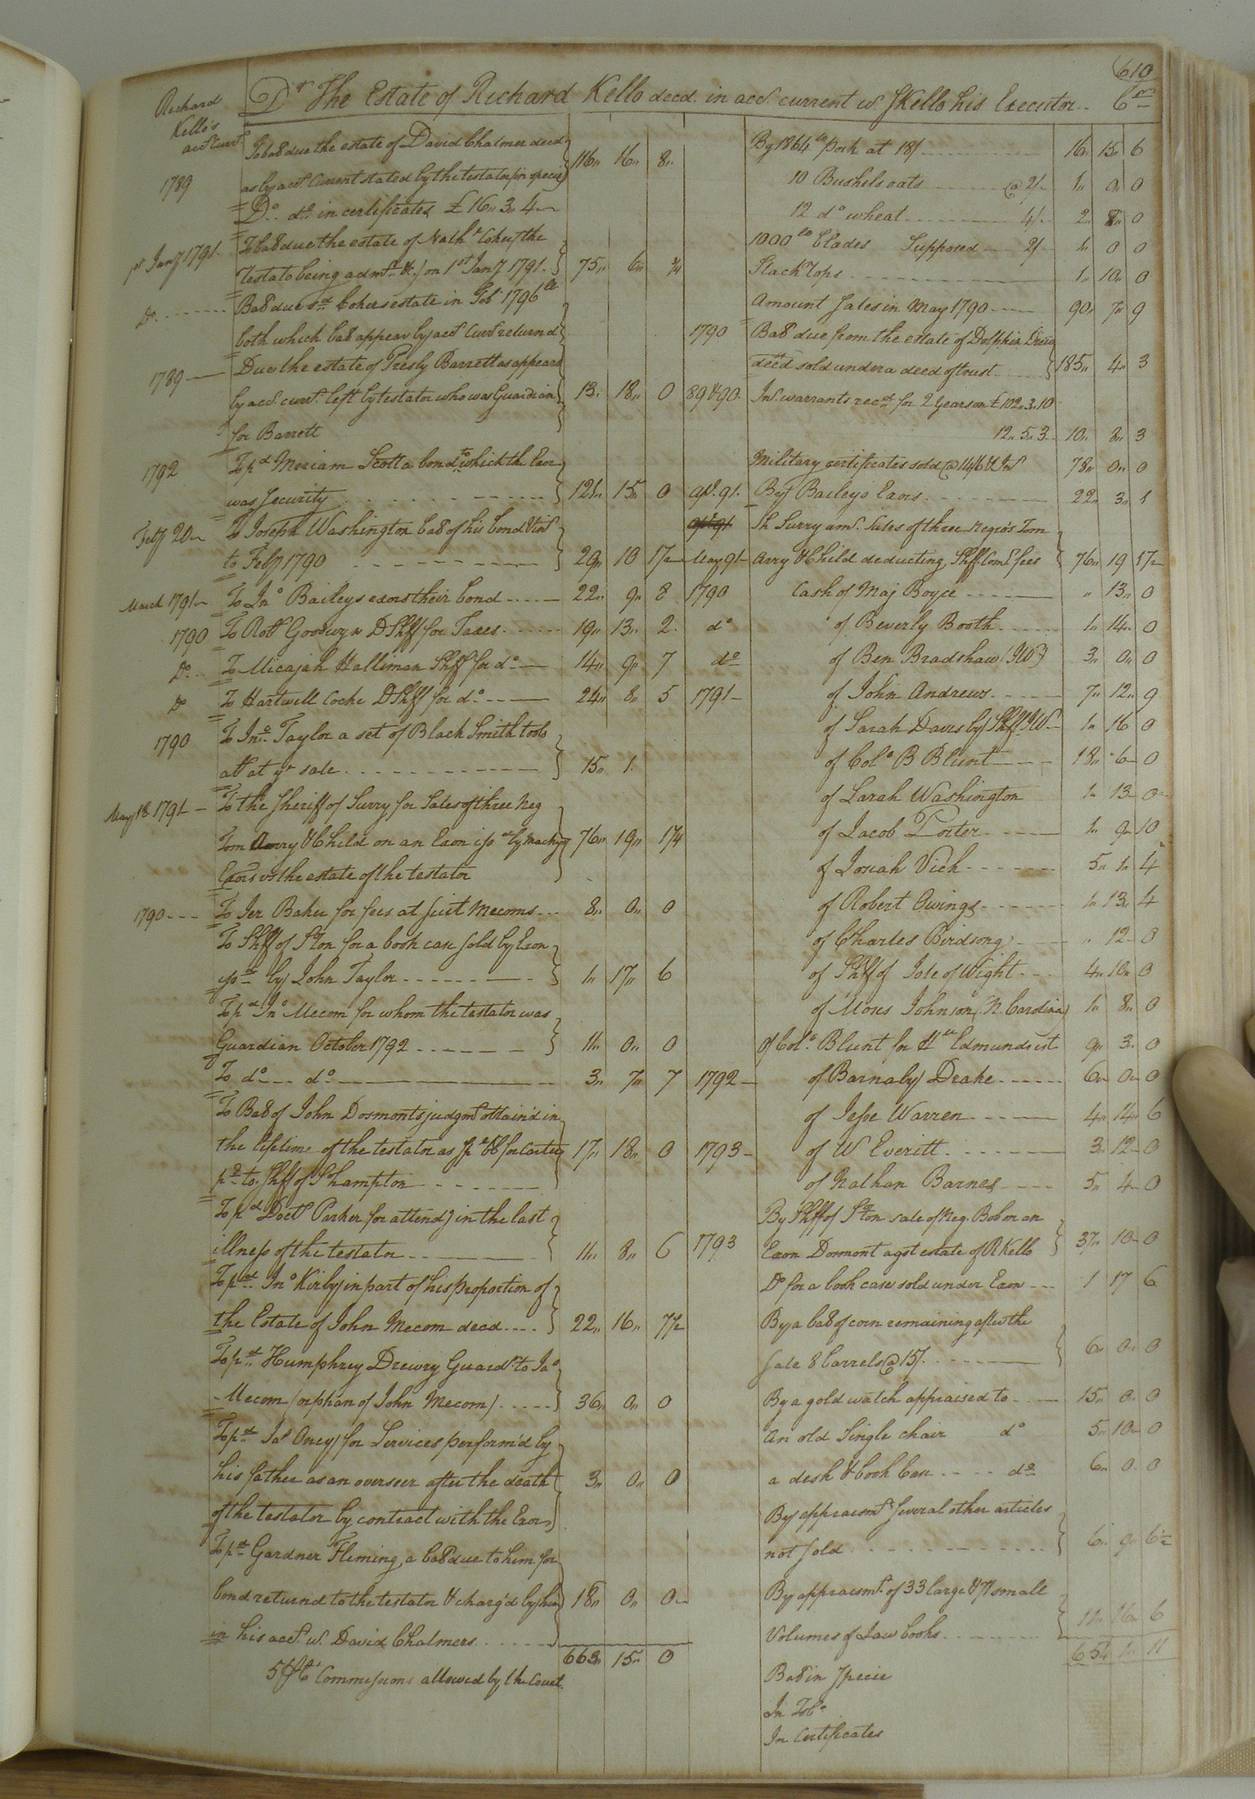 610
Richard
Kello's
acct Currt
Dr The Estate of Richard Kello decd. in acct. current wt. S Kello his Executor.. Cr
To bal due the estate of David Chalmer decd
1789 as by acct Current stated by the testator for specie 116 " 16 " 8 "
Do.. do. in certificates £ 16 " 3 " 4
To bal due the estate of Nathl. Coker the
1st Jany 1791 testator being admr. &c on 1st Jany 1791. 75 " 6 " 3/4
Do Bal due sd. Cokers estate in Feb 1796
both which bal appear by acct Currt returnd
1789 Due the estate of Presly Barrett as appears
by acct. currt. left by testator who was Guardian 13 " 18 " 0
for Barrett
1792 To pd Meriam Scott a bond to which the Exor
was Security 121 " 15 " 0
Feby 20 To Joseph Washington bal of his bond & Int
to Feby 1790 29 " 10 1 1/2
March 1791 To Jno Baileys exors their bond 22 " 9 " 8
1790 To Robt Goodwyn D Shff for Taxes 19 " 13 " 2
Do To Micajah Holliman Shff for do 14 " 9 " 7
Do To Hartwell Cocke D Shff for do 24 " 8 " 5
1790 To Jno. Taylor a set of Black Smith tools
at yr sale 15 " 1.
May 18 1791 To the sheriff of Surry for Sales of three Neg
Tom Avery & Child on an Exon
Exors vs the estate of the testator 76 " 19 " 1 3/4
1790 To Jer Baker for fees at suit Mecoms 8 " 0 " 0
To Shff of Ston for a book case sold by Exon
by John Taylor 1 " 17 " 6
To pd Jno Mecom for whom the testator was
Guardian October 1792 11 " 0 " 0
To do do 3 " 7 " 7
To Bal of John Dormonts judgmt obtain'd in
the lifetime of the testator as 17 " 18 " 0
pd to Shff of S hampton
To pd Doctr Parker for attendg in the last
illness of the testator 11 " 8 " 6
To pd. Jno Kirby in part of his proportion of
the Estate of John Mecom decd 22 " 16 " 7 1/2
To pd. Humphrey Drewry Guardn to Jas
Mecom (orphan of John Mecom) 36 " 0 " 0
To pd. Jas Oney for Services perform'd by
his father as an overseer after the death 3 " 0 " 0
of the testator by contract with the Exor
To pd Gardner Fleming, a bal due to him for
bond returnd to the testator & charg'd by him 18 " 0 " 0
in his acct. w. David Chalmers
663 " 15 " 0
5 pCt Commissions allowed by the Court
By 1864 lb pork at 18/ 16 " 15 " 6
10 Bushels oats @ 2/ 1 " 0 " 0
12 do wheat 4/ 2 " 8 " 0
1000 lb Blades Supposed 2/ 1 " 0 0
Stack Tops 1 " 10 " 0
Amount Sales in May 1790 90 " 7 " 9
1790 Bal due from the estate of Dolphin Drew
decd sold under a deed of trust 185 " 4 " 3
89 & 90 Int. warrants recd for 2 Years on £102 " 3 " 10
12 " 5 " 3 10 " 2 " 3
Military certificates sold @ 14/6 & Int 78 " 0 " 0
apl. 91. Benj Baileys Exors 22 " 3 " 1
Sh Surry amt. Sales of three Negro's Tom
May 91 Avery & Child deducting Shff Coms & fees 76 " 19 1 1/2
1790 Cash of Maj Boyce " 13 " 0
do of Beverly Booth 1 " 14 " 0
do of Ben Bradshaw (IW) 3 " 0 " 0
1791 of John Andrews 7 " 12 " 9
of Sarah Davis by Shff IW 1 " 16 0
of Colo B Blunt 18 " 6 0
of Sarah Washington 1 " 13 0
of Jacob Porter 1 " 9 " 10
of Josiah Vick 5 " 1 " 4
of Robert Owings 1 " 13 " 4
of Charles Birdsong " 12 0
of Shff of Isle of Wight 4 " 10 " 0
of Moses Johnson N. Carolina 1 " 8 " 0
of Colo. Blunt for Edmunds est 9 " 3 " 0
1792 of Barnaby Drake 6 " 0 " 0
of Jesse Warren 4 " 14 " 6
1793 of W Everitt 3 " 12 0
of Nathan Barnes 5 " 4 0
By Shff of Ston sale of Neg. Bob on an
1793 Exon Dormont agst estate of R Kello 37 " 10 0
Do for a book case sold under Exon 1 17 6
By a bal of corn remaining after the
sale 8 barrels @ 15/ 6 " 0 " 0
By a gold watch appraised to 15 " 0 " 0
An old Single chair do 5 " 10 0
a desk & book Case do 6 " 0 " 0
By appraismt several other articles
not sold 6 " 9 " 6 1/2
By appraismt. of 33 large & 7 small
Volumes of Law books 11 " 16 " 6
654 " 1 " 11
Bal in Specie
In Tobo
In Certificates